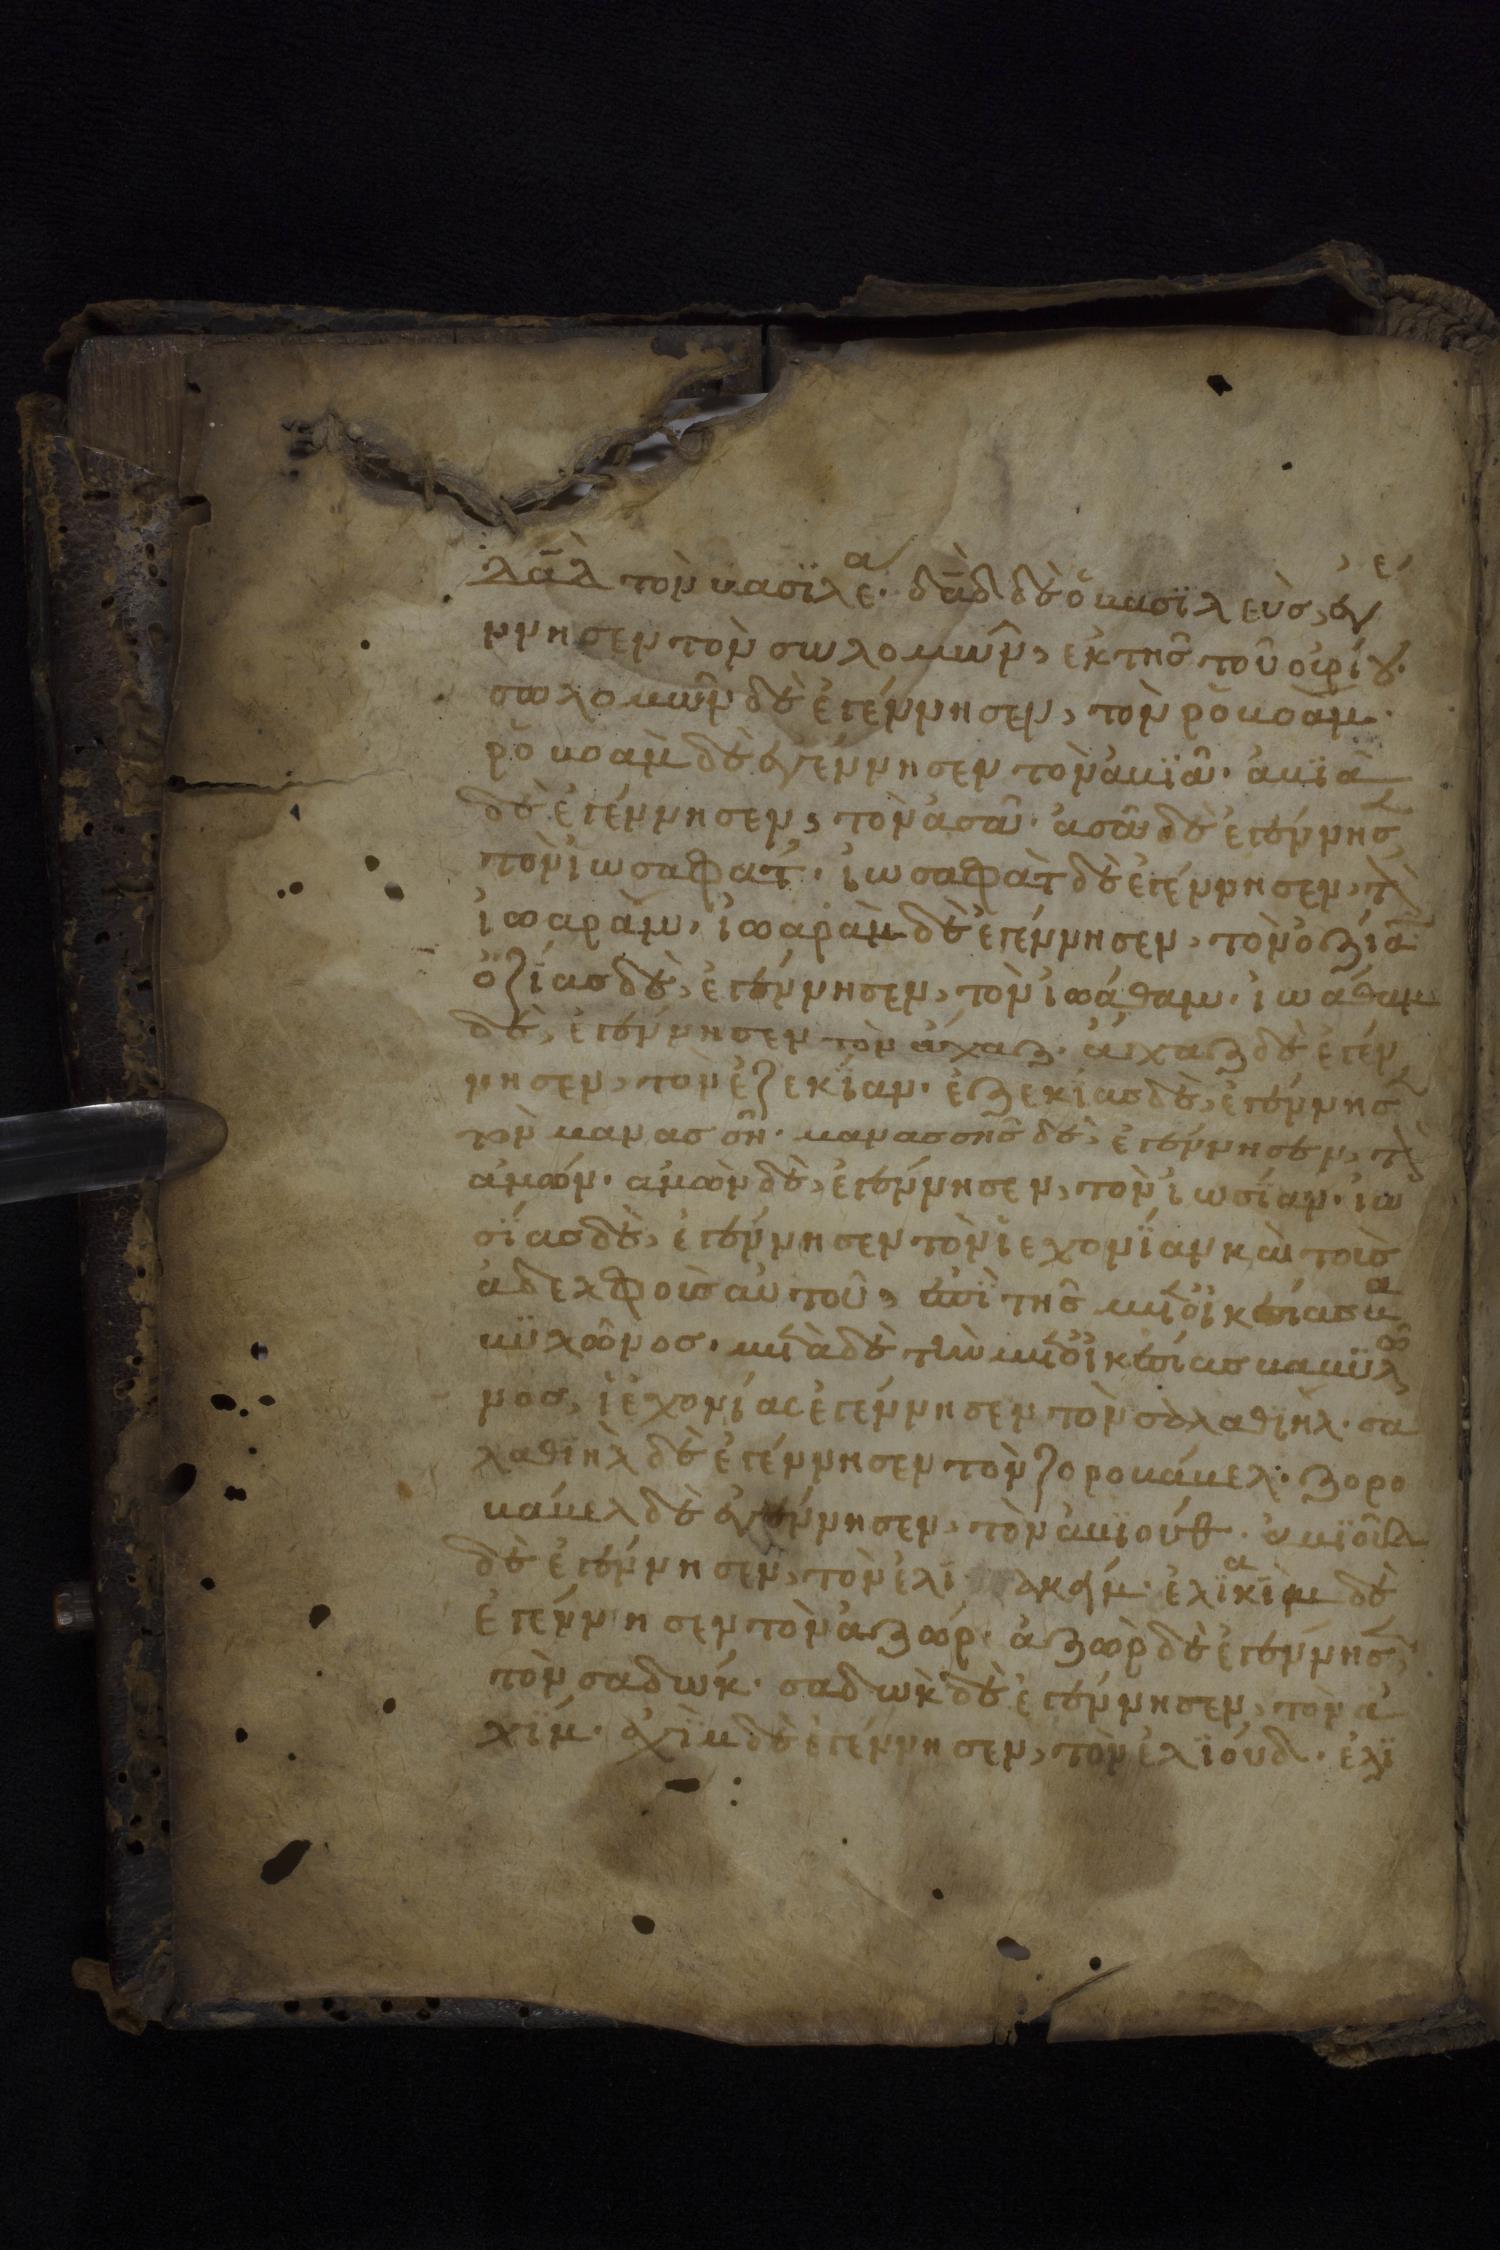 δ̅α̅δ̅ τὸν βασιλέα· δ̅α̅δ̅ δὲ ὁ βασιλεὺς, ἐγέ
ννησεν τὸν σολομῶν, ἐκ τῆς τοῦ οὐρίου·
σολομῶν δὲ ἐγέννησεν, τὸν ῥοβοάμ·
ῥοβοὰμ δὲ ἐγέννησεν τὸν ἀβϊᾶ· ἀβϊὰ
δὲ ἐγέννησεν, τὸν ἀσᾶ· ἀσᾶ δὲ ἐγέννησ
τὸν ἰωσαφάτ· ἰωσαφὰτ δὲ ἐγέννησεν, τὸ
ἰωαράμ, ἰωαρὰμ δὲ ἐγέννησεν, τὸν ὀζία
ὀζίας δὲ, ἐγέννησεν, τὸν ἰωάθαμ· ἰωάθαμ
δὲ, ἐγέννησεν τὸν ἄχαζ· ἄχαζ δὲ ἐγέν
νησεν, τὸν ἐζεκίαν· ἐζεκίας δὲ, ἐγέννησ
τὸν μανασσῆ· μανασσῆς δὲ, ἐγέννησεν, τὸ
ἀμών· ἀμὼν δὲ, ἐγέννησεν, τὸν ἰωσίαν· ἰω
σίας δὲ, ἐγέννησεν τὸν ἰεχονΐαν καὶ τοὺς
ἀδελφοὺς αὐτοῦ, ἐπὶ τῆς μετοικεσίας βα
βυλῶνος· μετὰ δὲ τὴν μετοικεσίας βαβυλῶ
νος, ἰεχονίας ἐγέννησεν τὸν σαλαθιήλ· σα
λαθιὴλ δὲ ἐγέννησεν τὸν ζοροβάβελ· ζορο
βάβελ δὲ ἐγέννησεν, τὸν ἀβϊούδ· ἀβϊοὺδ
δὲ ἐγέννησεν, τὸν ἐλι ακήμ· ἐλϊακὶμ δὲ
ἐγέννησεν τὸν ἀζώρ· ἀζὼρ δὲ ἐγέννησ
τὸν σαδώκ· σαδὼκ δὲ ἐγέννησεν, τὸν ἀ
χΐμ· ἀχὶμ δὲ ἐγέννησεν, τὸν ἐλϊούδ· ἐλϊ